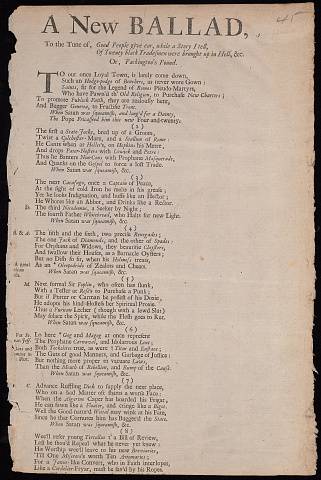 45
A New BALLAD,
To the Tune of, Good People give ear, while a Story I tell,
Of Twenty black Tradesmen were brought up in Hell, &c.
Or, Packington's Pound.
TO our once Loyal Town, is lately come down,
Such an Hodge-podge of Bawkers, as never wore Gown;
Saints, fit for the Legend of Romes Pseudo-Martyrs,
Who have Pawn'd th' Old Religion, to Purchase New Charters;
To promote Publick Faith, they are zealously bent,
And Bugger Geneva, to Fructifie Trent.
When Satan was squeamish, and long'd for a Dainty,
The Pope Fricassied him this new Four-and-twenty.
(2)
The first a State-Jocky, bred up of a Groom,
Twixt a Colchester-Mare, and a Stallion of Rome
He Cants when at Heller's, on Hopkins his Meter,
And drops Pater-Nosters with Lowick and Petre:
Thus he Banters Non-Cons with Prophane Masquerade,
And Quacks on the Gospel to force a lost Trade.
When Satan was squeamish, &c.
(3)
The next Cataline, once a Captain of Peace,
At the sight of cold Iron he melts in his grease;
Yet he looks Indignation, and huffs like an Hector;
He Whores like an Abbot, and Drinks like a Rector.
B. The third Nicodemus, a Seeker by Night;
The fourth Father Whitebread, who Halts for new Light.
When Satan was squeamish, &c.
(4)
The fifth and the sixth, two precise Renegades;
The one Jack of Diamonds, and the other of Spades:
For Orphans and Widows, they beautifie Cloysters,
And swallow their Houses, as a Barnacle Oysters;
But no Dish so fit, when his Holiness treats,
As an * of Zealots and Cheats.
When Satan was squeamish, &c.
(5)
M. Next formal Sir Foplin, who often has slunk,
With a Tester at to Purchase a Punk;
But if Porter or Carman be possest of his Doxie,
He adopts his kind-Hostess her Spiritual Proxie.
Thus a Puritan Lecher (though with a lewd Slut)
May solace the Spirit, while the Flesh goes to Rut.
When Satan was squeamish, &c.
(6)
Lo here * Gog and Magog at once represent
The Prophane Carnaval, and Idolatrous Lent;
Both Tackalites true, as were † Titus and Eustace;
The Guts of good Manners, and Garbage of Justice:
But nothing more proper in vacuum Laws,
Than the Mouth of Rebellion, and Rump of the Cause.
When Satan was squeamish, &c.
(7)
C. Advance Ruffling Dick to supply the next place,
Who on a bad Matter set a worse Face:
When the Algerine Caper has boarded his Frigat,
He can fawn like a Flaxen, and cringe like a Bigot.
Well the Good-natur'd Weasel may wink at his Fate,
Since he that Cornutes him has Buggar'd the State.
When Satan was squeamish, &c.
(8)
Wee'l refer young Tertullus t'a Bill of Review,
Let he shou'd Repeal what he never yet knew:
He Worship wee'l leave to his new Breviaries,
Till One Miserere's worth Ten Annuities;
For a Janus-like Convert, who in Faith interlopes,
Like a Cordelier-Fryar, must be flav'd by his Ropes.